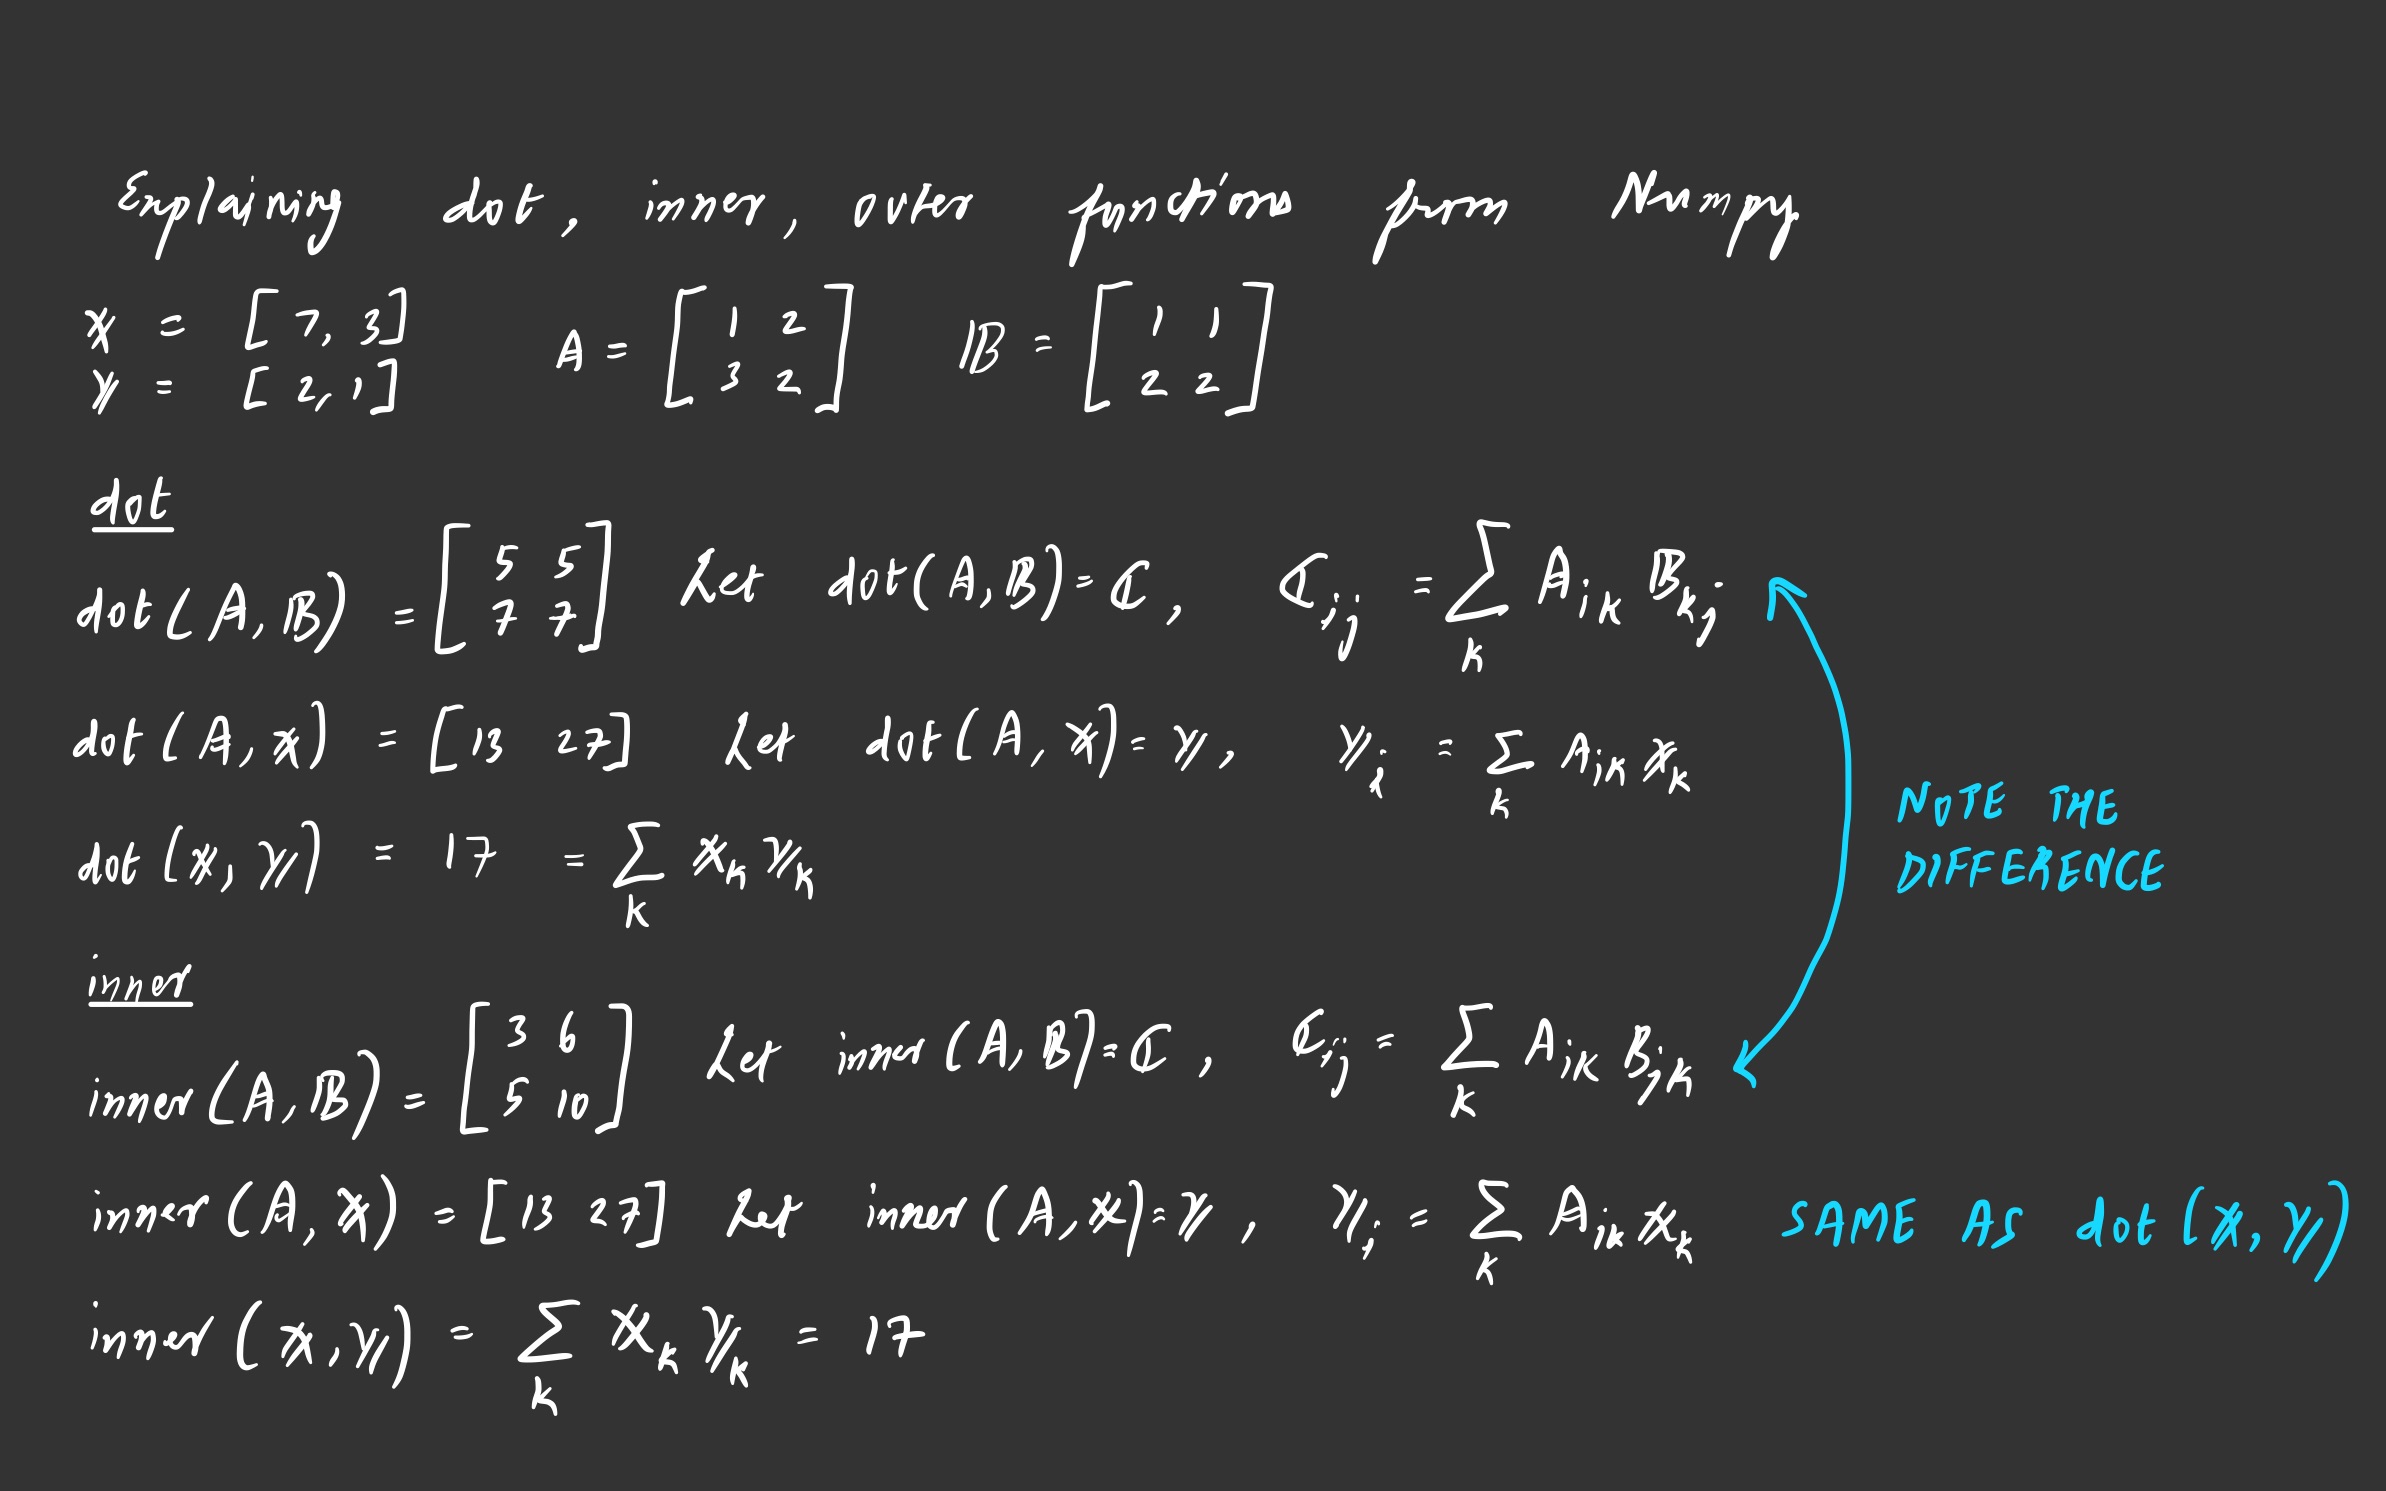 Explaining dot, inner, outer functions from Numpy
X = [7, 3]
Y = [2, 1]
A = [1 2
3 2]
B = [1 1
2 2]
dot
dot(A, B) = [5 5
7 7] Let dot(A, B) = C, C_ij = Σ_k A_ik B_kj
dot(A, X) = [13 27] Let dot(A, X) = Y, Y_i = Σ_k A_ik X_k
dot(X, Y) = 17 = Σ_k X_k Y_k
NOTE THE
DIFFERENCE
inner
inner(A, B) = [3 6
5 10] Let inner(A, B) = C, C_ij = Σ_k A_ik B_jk
inner(A, X) = [13 27] Let inner(A, X) = Y, Y_i = Σ_k A_ik X_k SAME AS dot(X, Y)
inner(X, Y) = Σ_k X_k Y_k = 17